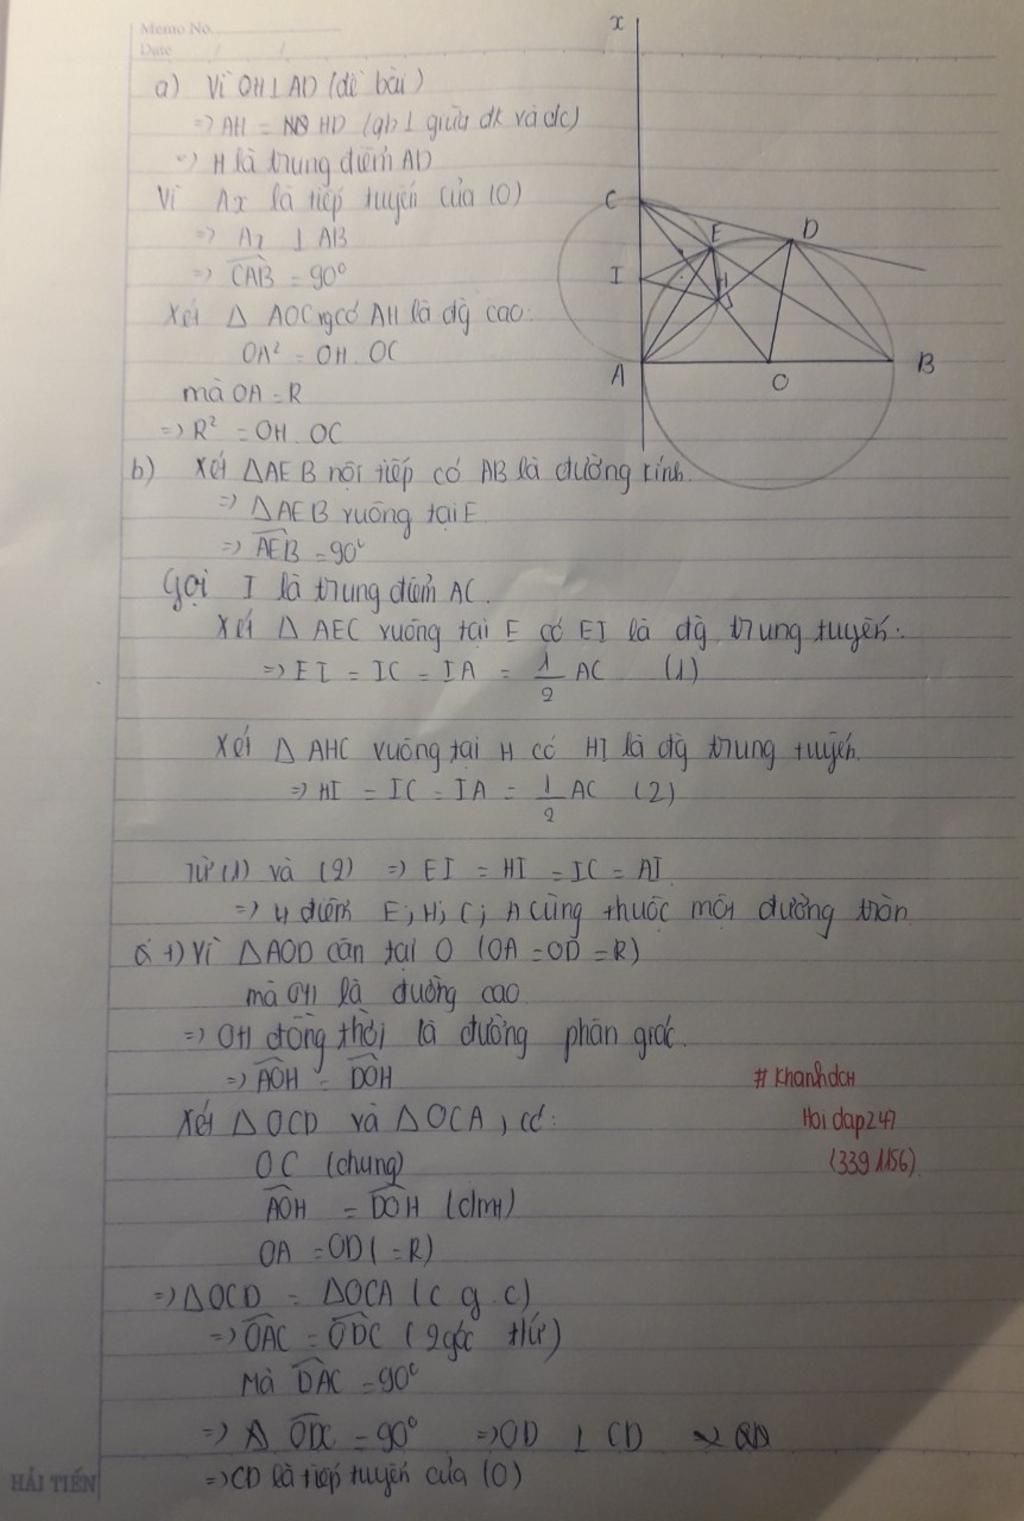 Memo No.
Date / /
x
a) Vì OH ⊥ AD (đề bài)
=> AH = HD (qh ⊥ giữa đk và dc)
=> H là trung điểm AD
Vì Ax là tiếp tuyến của (O)
=> Ax ⊥ AB
=> CAB = 90°
Xét Δ AOC vg có AH là đg cao:
OA² = OH . OC
mà OA = R
=> R² = OH . OC
C E D
I H
A O B
b) Xét ΔAEB nội tiếp có AB là đường kính.
=> ΔAEB vuông tại E
=> AEB = 90°
Gọi I là trung điểm AC.
Xét Δ AEC vuông tại E có EI là đg trung tuyến.
=> EI = IC = IA = 1/2 AC (1)
Xét Δ AHC vuông tại H có HI là đg trung tuyến.
=> HI = IC = IA = 1/2 AC (2)
Từ (1) và (2) => EI = HI = IC = AI
=> 4 điểm E; H; C; A cùng thuộc một đường tròn
+) Vì ΔAOD cân tại O (OA = OD = R)
mà OH là đường cao
=> OH đồng thời là đường phân giác.
=> AOH = DOH
Xét ΔOCD và ΔOCA, có:
OC (chung)
AOH = DOH (cmt)
OA = OD (= R)
=> ΔOCD = ΔOCA (c g . c)
=> OAC = ODC (2 góc t/ứ)
Mà OAC = 90°
=> ODC = 90° => OD ⊥ CD
=> CD là tiếp tuyến của (O)
# KhanhdcH
Hoidap247
(3391156)
HẢI TIẾN